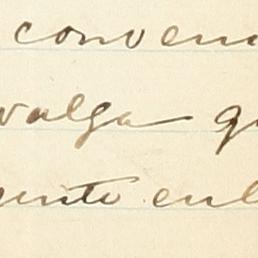 conven
valga qu
ente enl